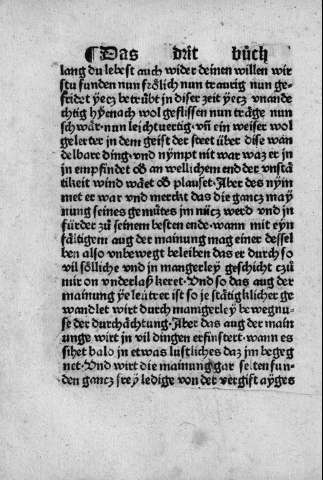 ¶Das drit büch
lang du lebest auch wider deinen willen wir
st u funden nun frölich nun traurig nun ge-
fridet yecz betrübt in diser zeit yecz vnande
chtig hyenach wol geflissen nun träge nun
schwär·nun leichtuertig·vn̄ ein weiser wol
gelerter in dem geist der steet über dise wan
delbare ding·vnd nympt nit war waz er in
im empfindet oð an wellichem end der vnstä
tikeit wind wäet oð plauset·Aber des nym
met er war vnd merckt das die gancz may
nung seines gemütes im nücz werd vnd in
fürder zů seinem besten ende·wann mit eyn
fältigem aug der mainung mag einer dessel
ben also vnbewegt beleiben das er durch so
vil söliche vnd in mangerley geschicht czů
mir on vnderlaß keret·Vnd so das aug der
mainung ye leütrer ist so ie stätigklicher ge
wandlet wirt durch mangerley bewegnu-
se der durchächtung·Aber das aug der main
unge wirt in vil dingen erfinstert·wann es
sihet balo in etwas lustliches daz im begeg
net·Vnd wirt die mainung gar selten fun-
den gancz frey ledige von der vergift ayges